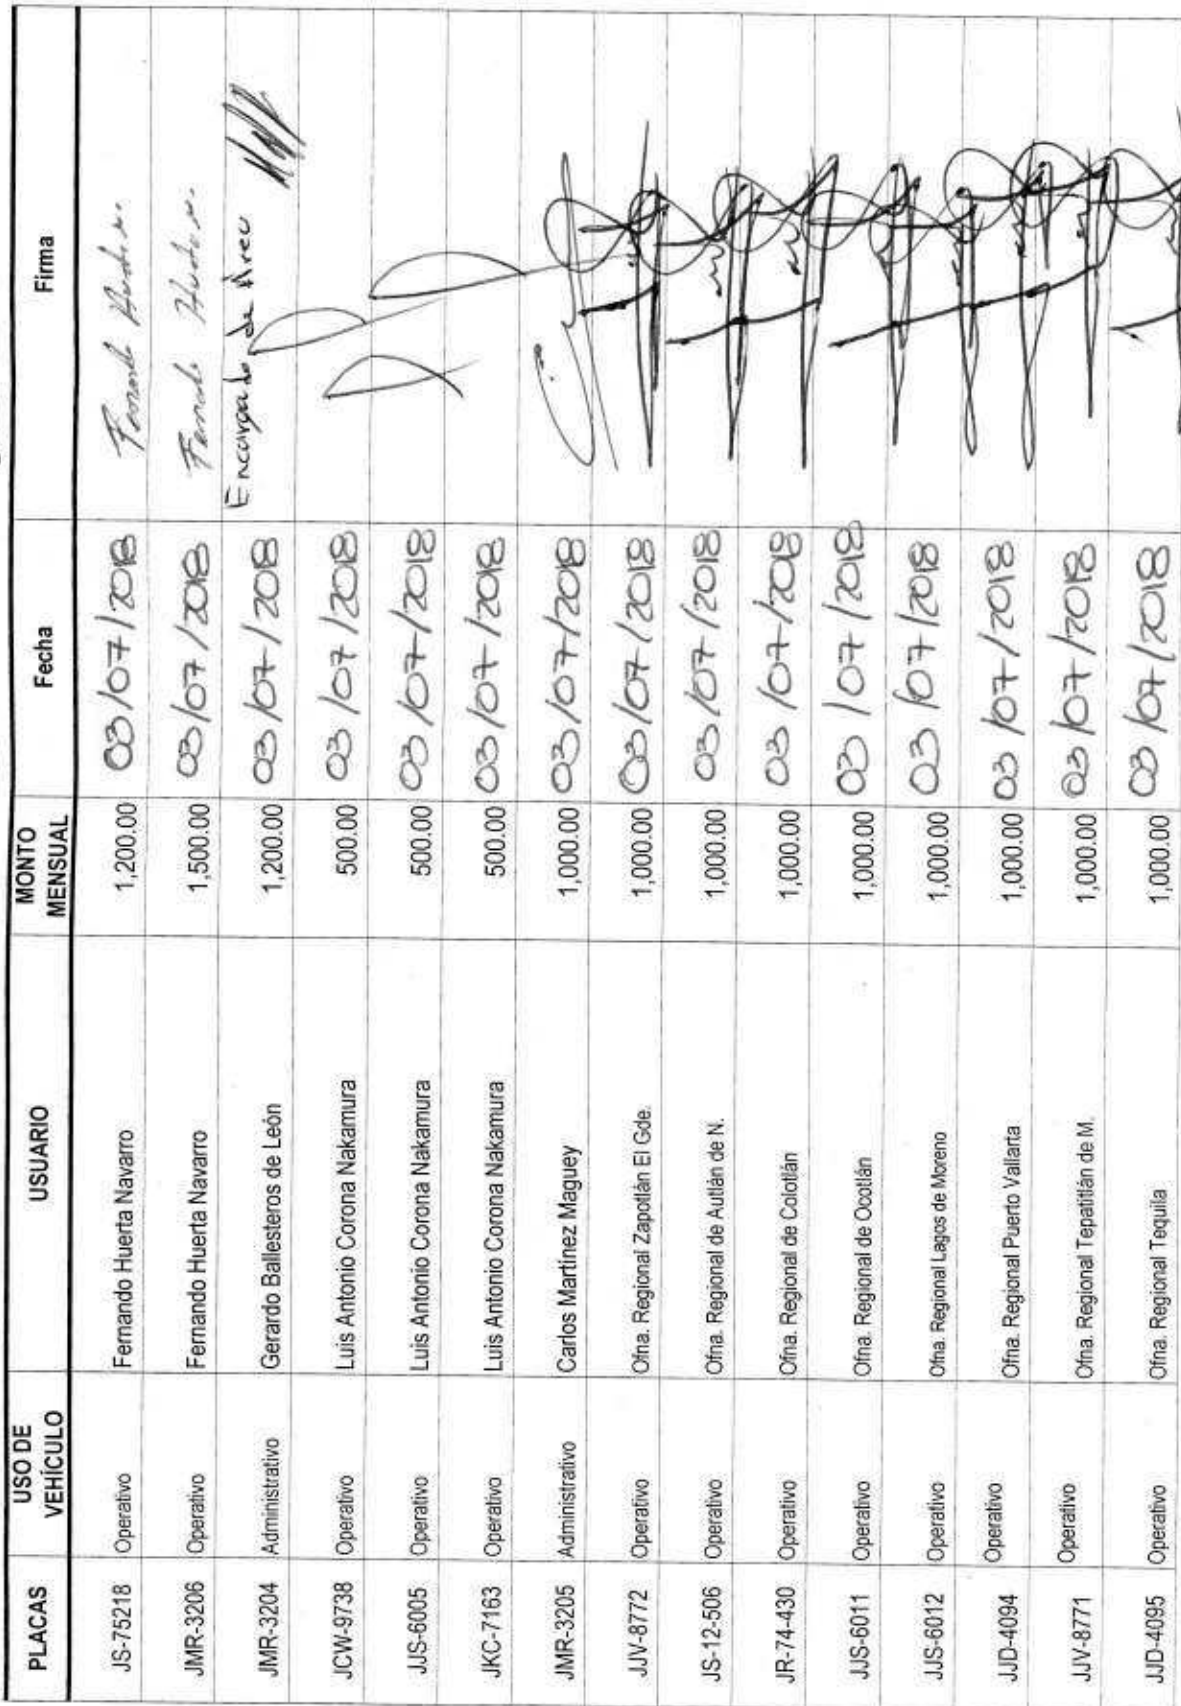 PLACAS USO DE VEHÍCULO USUARIO MONTO MENSUAL Fecha Firma
JS-75218 Operativo Fernando Huerta Navarro 1,200.00 03/07/2018 Fernando Huerta N.
JMR-3206 Operativo Fernando Huerta Navarro 1,500.00 03/07/2018 Fernando Huerta N.
JMR-3204 Administrativo Gerardo Ballesteros de León 1,200.00 03/07/2018 Encargado de Área
JCW-9738 Operativo Luis Antonio Corona Nakamura 500.00 03/07/2018
JJS-6005 Operativo Luis Antonio Corona Nakamura 500.00 03/07/2018
JKC-7163 Operativo Luis Antonio Corona Nakamura 500.00 03/07/2018
JMR-3205 Administrativo Carlos Martínez Maguey 1,000.00 03/07/2018
JJV-8772 Operativo Ofna. Regional Zapotlán El Gde. 1,000.00 03/07/2018
JS-12-506 Operativo Ofna. Regional de Autlán de N. 1,000.00 03/07/2018
JR-74-430 Operativo Ofna. Regional de Colotlán 1,000.00 03/07/2018
JJS-6011 Operativo Ofna. Regional de Ocotlán 1,000.00 03/07/2018
JJS-6012 Operativo Ofna. Regional Lagos de Moreno 1,000.00 03/07/2018
JJD-4094 Operativo Ofna. Regional Puerto Vallarta 1,000.00 03/07/2018
JJV-8771 Operativo Ofna. Regional Tepatitlán de M. 1,000.00 03/07/2018
JJD-4095 Operativo Ofna. Regional Tequila 1,000.00 03/07/2018